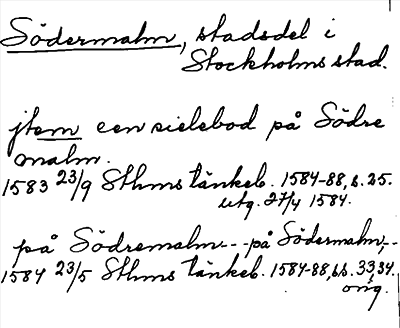 Södermalm, stadsdel i
Stockholms stad.
jtem een sielebod på Södre
malm.
1583 23/9 Sthms tänkeb. 1584-88, s. 25.
utg. 27/4 1584.
på Södremalm--- på Södermalm,--
1584 23/5 Sthms tänkeb. 1584-88, ss. 33, 34.
orig.